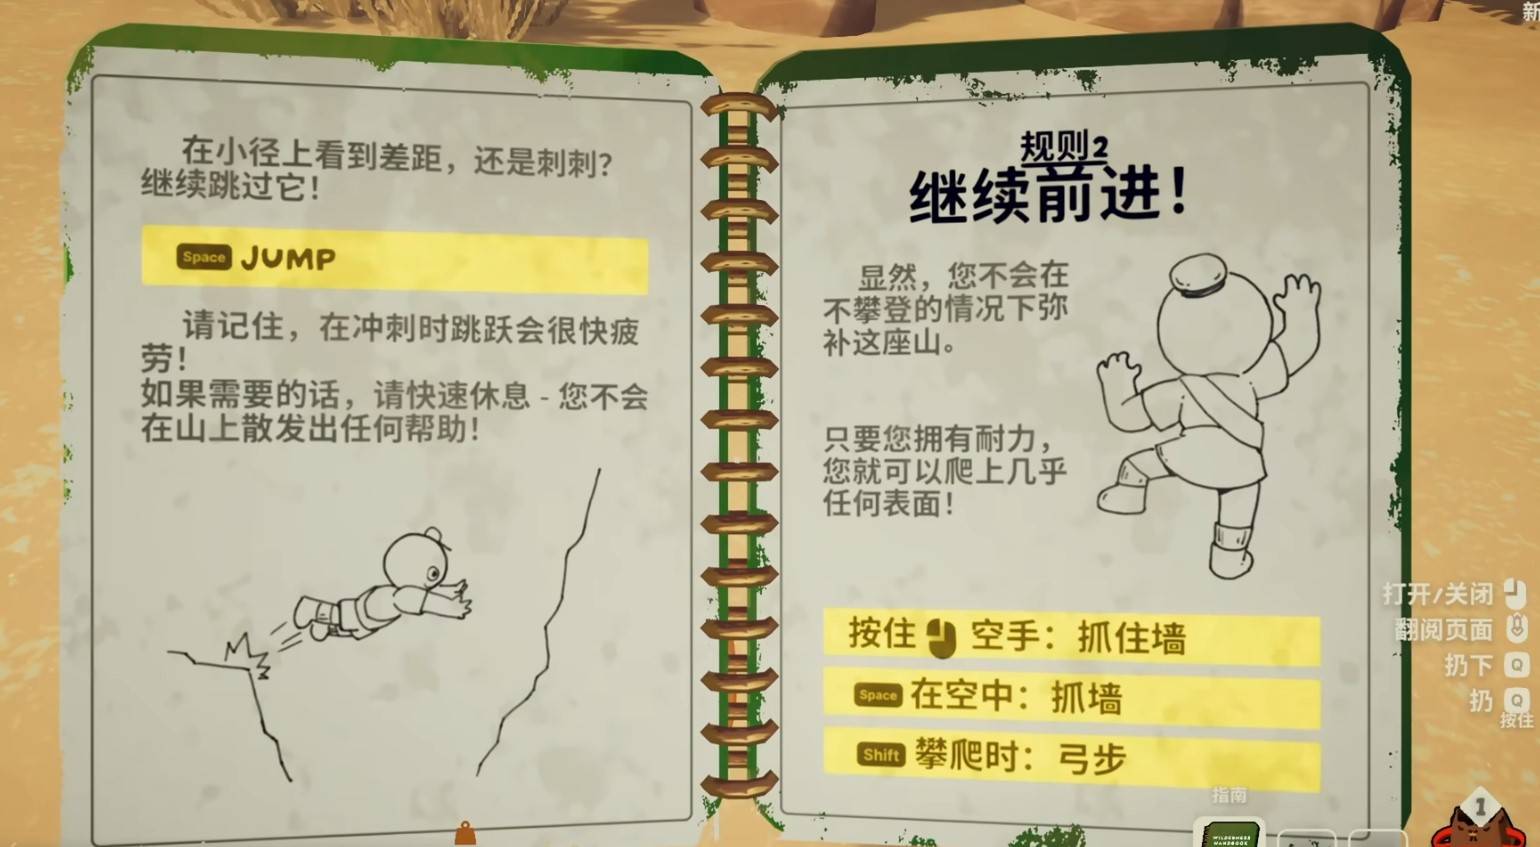 新
在小径上看到差距，还是刺刺？
继续跳过它！
Space JUMP
请记住，在冲刺时跳跃会很快疲
劳！
如果需要的话，请快速休息 - 您不会
在山上散发出任何帮助！
规则2
继续前进！
显然，您不会在
不攀登的情况下弥
补这座山。
只要您拥有耐力，
您就可以爬上几乎
任何表面！
按住 空手：抓住墙
Space 在空中：抓墙
Shift 攀爬时：弓步
打开/关闭
翻阅页面
扔下 Q
扔 Q
按住
指南
WILDERNESS
HANDBOOK
1